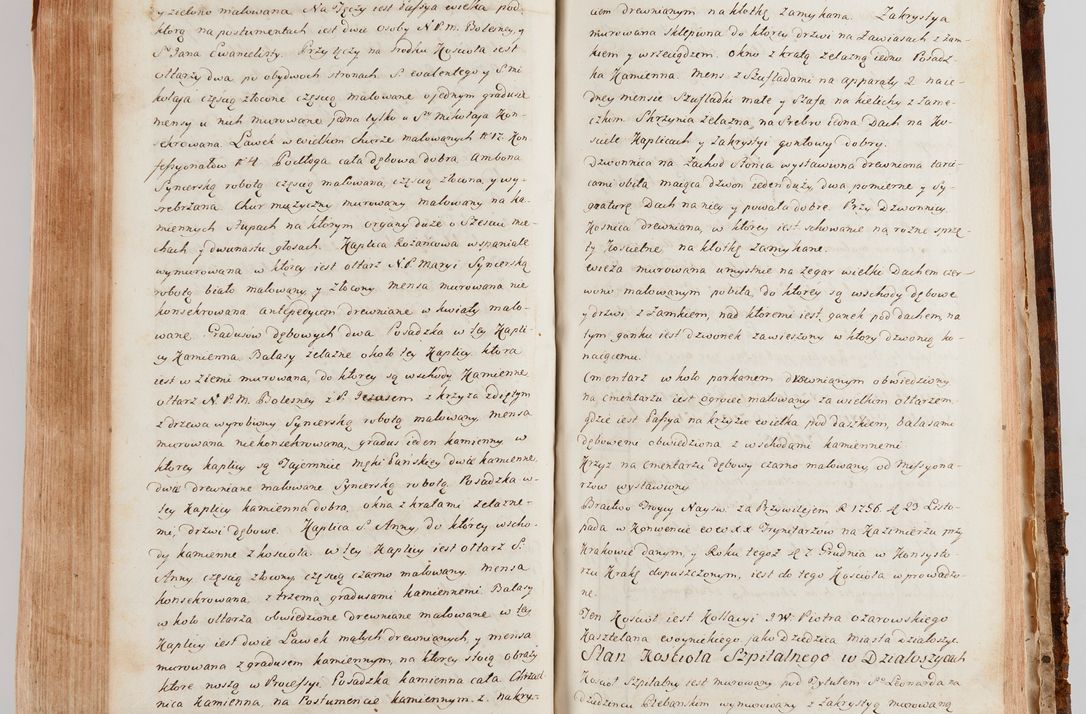 y zielono malowana. Na Tęczy jest Passya wielka pod
ktorą na postumentach jest dwie osoby N.P.M. Bolesney, y
Sº Jana Ewangelisty. Przy tęczy na srodku Kosciola iest
ołtarzy dwa po obydwoch stronach. S. Walentego y S. Mi
kołaia częscią złocone częscią malowane o jednym gradusie
mensy u nich murowane jedna tylko u Sº Mikołaja Kon-
sekrowana. Ławek w wielkim chorze malowanych N 12. Kon
fessyonałow N 4. Podłoga cała dębowa dobra. Ambona
Snycerską robotą częscią malowana, częscią złocona, y wy-
srebrzana. Chor muzyczny murowany malowany na ka-
miennych słupach na ktorym organy duże o szesciu mie-
chach y dwunastu głosach. Kaplica Rożańcowa wspaniale
wymurowana w ktorey iest ołtarz N.P. Maryi Snycerską
robotą biało malowany y złocony mensa murowana nie
konsekrowana antepedyum drewniane w kwiaty malo-
wane. Gradusow dębowych dwa Posadzka w tey Kapli-
cy Kamienna Balasy żelazne około tey Kaplicy ktora
iest w ziemi murowana, do ktorey są wschody Kamienne
ołtarz N.P.M. Bolesney z P. Jezusem z krzyża zdiętym
z drzewa wyrobiony Snycerską robotą malowany, mensa
murowana niekonsekrowana, gradus ieden kamienny w
ktorey kaplicy są Tajemnice męki Pańskiey dwie kamienne,
dwie drewniane malowane Snycerską robotą Posadzka w-
tey Kaplicy kamienna dobra, okna z kratami żelazne-
mi, drzwi dębowe. Kaplica S. Anny, do ktorey wscho-
dy kamienne z kosciola. w tey Kaplicy iest ołtarz S.
Anny, częscią złocony, częscią czarno malowany. mensa
konsekrowana, z trzema gradusami kamiennemi Balasy
w koło ołtarza obwiedzione drewniane malowane w tey
Kaplicy iest dwie Ławek małych drewnianych, y mensa
murowana z gradusem kamiennym, na ktorey stoią obrazy
ktore noszą w Processyi Posadzka kamienna cała Chrzciel
nica kamienna, na Postumencie kamiennym z nakry-
ciem drewnianym na kłotkę zamykana. Zakrystya
murowana sklepiona do ktorey drzwi na zawiasach z zam-
kiem y wrzeciądzem. okno z kratą żelazną iedno Posadz-
ka Kamienna. Mens z Szufladami na apparaty 2 na ie-
dney mensie Szufladki małe y Szafa na kielichy z zame-
czkem. Skrzynia żelazna na Srebro iedna Dach na Ko-
sciele Kaplicach y Zakrystyi gontowy dobry.
Dzwonnica na Zachod słońca wystawiona drewniana tarci-
cami obita maiąca dzwon ieden duży, dwa pomierne y Sy-
gnaturę Dach na niey y powała dobre. Przy Dzwonnicy
Kosnica drewniana, w ktorey iest schowanie na rożne sprzę-
ty Koscielne na kłotkę zamykane.
Wieża murowana umyslnie na zegar wielki Dachem czer-
wono malowanym pobita, do ktorey są wschody dębowe
y drzwi z zamkiem, nad ktoremi iest ganek pod dachem, na
tym ganku iest dzwonek zawieszony w ktory dzwonią ko-
naiącemu.
Cmentarz w koło parkanem drewnianym obwiedziony
na cmentarzu iest ogroiec malowany za wielkim ołtarzem
gdzie iest Passya na krzyżu wielka pod daszkiem, balasami
dębowemi obwiedziona z wschodami kamiennemi
Krzyż na Cmentarzu dębowy czarno malowany od Missyona-
rzow wystawiony
Bractwo Troycy Nayśw. za Przywilejem R 1756. d. 23. Listo-
pada w Konwencie WW XX Trynitarzow na Kazimierzu przy
Krakowie danym, y Roku tegoż d. 7 Grudnia w Konsysto-
rzu Krakę dopuszczonym, iest do tego Kosciola wprowadzo-
ne.
Ten Kosciół iest Kollacyi J.W. Piotra Ożarowskiego
Kasztelana Woynickiego jako Dziedzica Miasta Działoszyc.
Stan Kosciola Szpitalnego w Działoszycach
Kosciol Szpitalny iest murowany pod Tytułem Sº Leonarda na
dziedzincu Plebańskim wymurowany z Zakrystyą murowaną